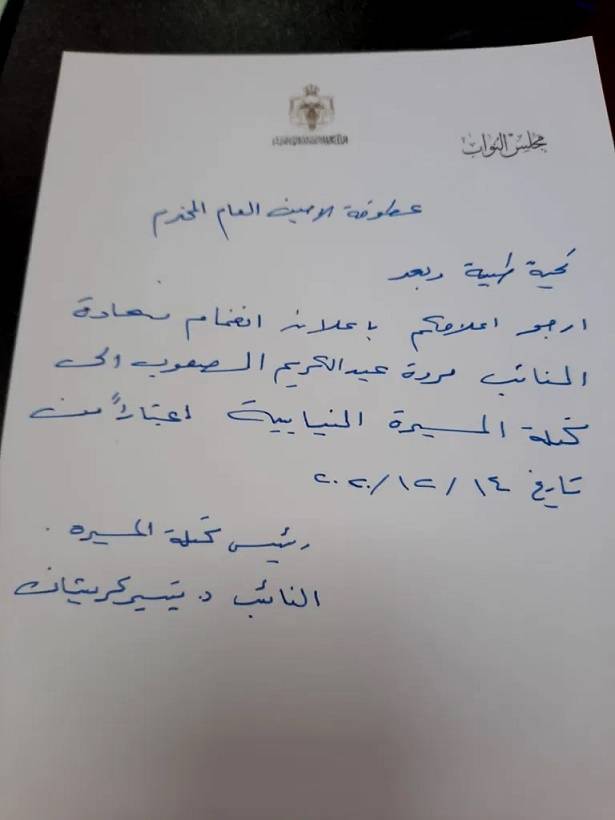 مجلس النواب
عطوفة الامين العام المحترم
تحية طيبة وبعد
ارجو اعلامكم باعلان انضمام سعادة
النائب مروة عبدالكريم الصعوب الى
كتلة المسيرة النيابية اعتباراً من
تاريخ ١٤/١٢/٢٠٢٠
رئيس كتلة المسيره.
النائب د. تيسير كريشان